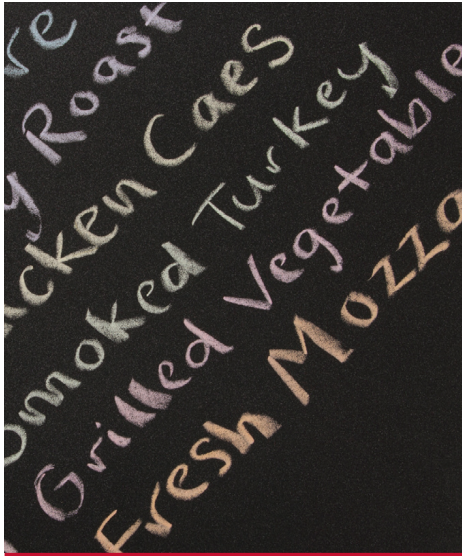 ve
y Roast
icken Caes
omoked Turkey
Grilled Vegetable
Fresh Mozza